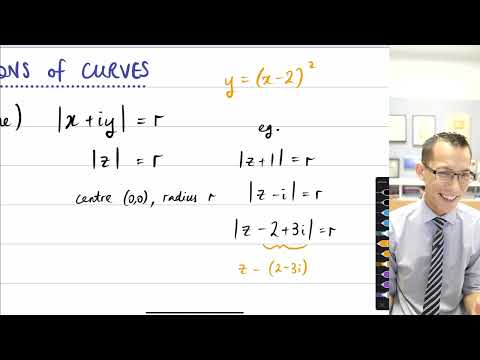 ONS of CURVES
y = (x-2)²
|x + iy| = r
eg.
|z| = r
|z+1| = r
centre (0,0), radius r
|z - i| = r
|z - 2 + 3i| = r
z - (2-3i)